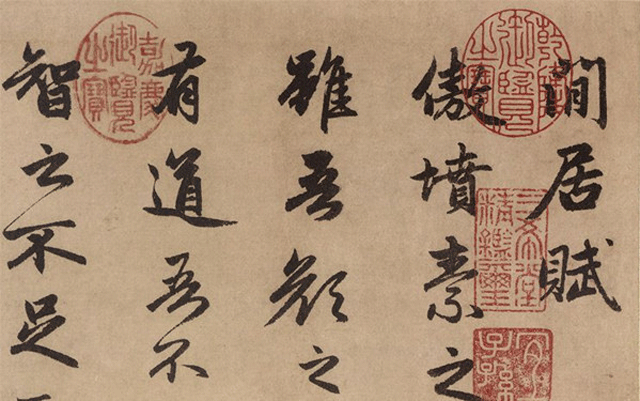 閒居賦
傲墳素之
雖吾顏之
有道吾不
智之不足
乾隆御覽之寶
三希堂精鑑璽
宜子孫
嘉慶御覽之寶